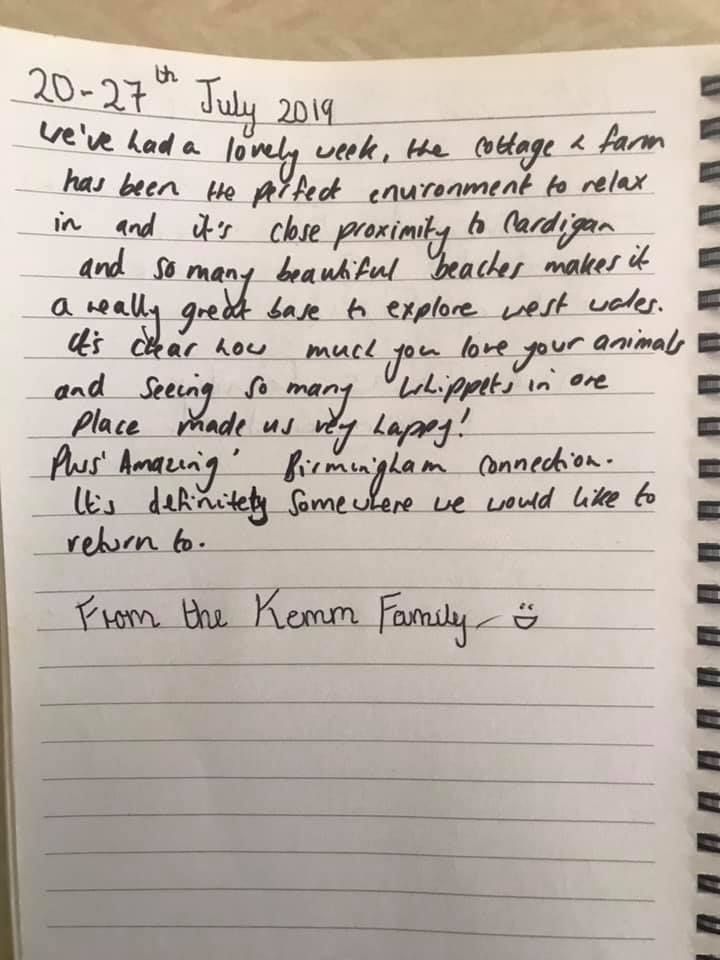 20-27th July 2019
We've had a lovely week, the cottage & farm
has been the perfect environment to relax
in and it's close proximity to Cardigan
and so many beautiful beaches makes it
a really great base to explore west wales.
It's clear how much you love your animals
and seeing so many whippets in one
place made us very happy!
Plus 'Amazing' Birmingham connection.
It's definitely somewhere we would like to
return to.
From the Kemm Family